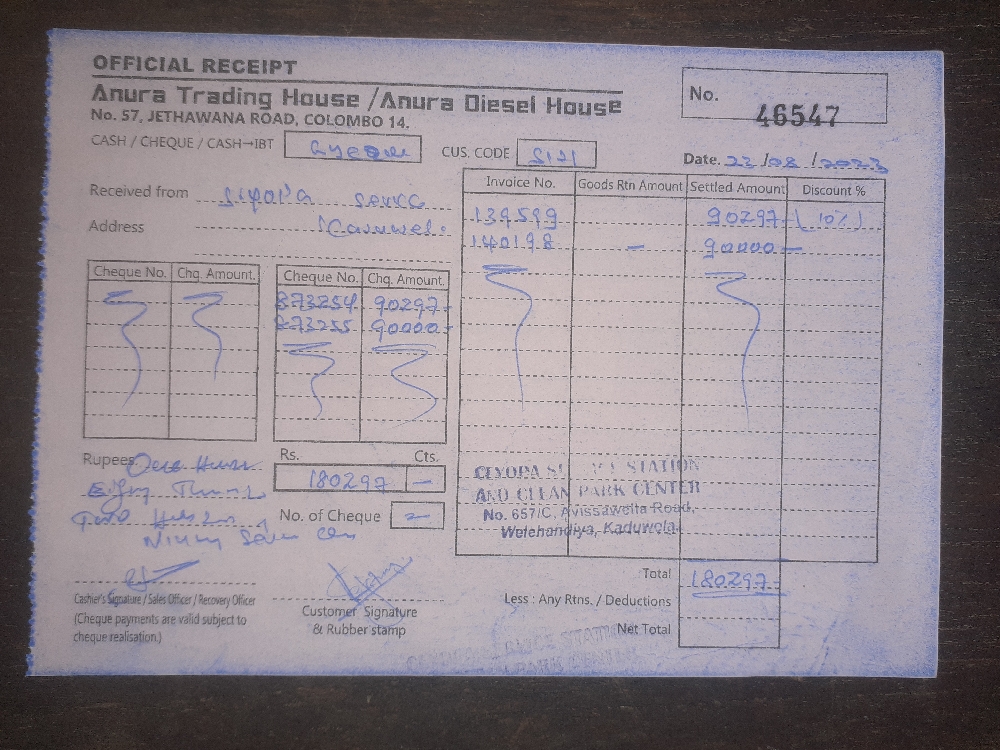 OFFICIAL RECEIPT
Anura Trading House / Anura Diesel House
No. 57, JETHAWANA ROAD, COLOMBO 14.
No. 46547
CASH / CHEQUE / CASH→IBT
CUS. CODE
Date. 22/08/2023
Received from
Address
Invoice No. Goods Rtn Amount Settled Amount Discount %
139599 90297 (10%)
140198 — 90000—
Cheque No. Chq. Amount. Cheque No. Chq. Amount.
873254 90297-
873255 90000-
Rupees
Rs. Cts.
180297 —
No. of Cheque 2
STATION
AND CLEAN PARK CENTER
No. 657/C, Avissawella Road,
Welehandiya, Kaduwela.
Total 180297-
Less : Any Rtns. / Deductions
Net Total
Cashier's Signature / Sales Officer / Recovery Officer
(Cheque payments are valid subject to
cheque realisation.)
Customer Signature
& Rubber stamp